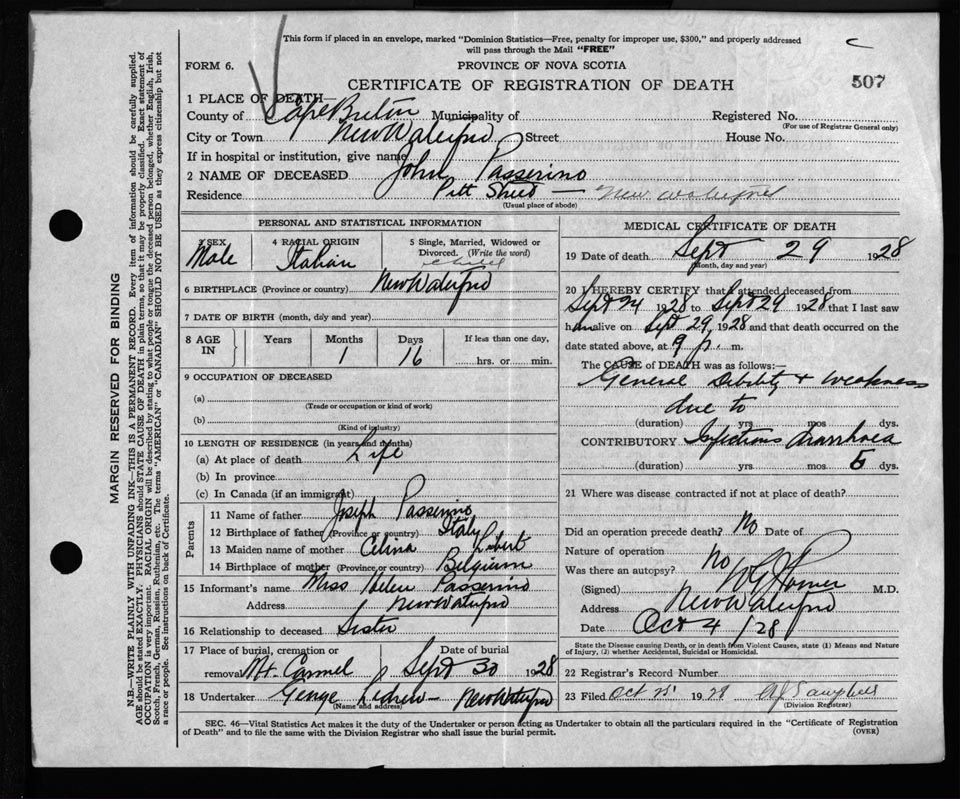 This form if placed in an envelope, marked "Dominion Statistics—Free, penalty for improper use, $300," and properly addressed
will pass through the Mail "FREE"
FORM 6.
PROVINCE OF NOVA SCOTIA
CERTIFICATE OF REGISTRATION OF DEATH
507
1 PLACE OF DEATH—
County of Cape Breton Municipality of Registered No.
(For use of Registrar General only)
City or Town New Waterford Street House No.
If in hospital or institution, give name
2 NAME OF DECEASED John Passerino
Residence Pitt Street — New Waterford
(Usual place of abode)
PERSONAL AND STATISTICAL INFORMATION
3 SEX Male
4 RACIAL ORIGIN Italian
5 Single, Married, Widowed or
Divorced. (Write the word)
child
6 BIRTHPLACE (Province or country) New Waterford
7 DATE OF BIRTH (month, day and year)
8 AGE IN Years Months 1 Days 16 If less than one day,
hrs. or min.
9 OCCUPATION OF DECEASED
(a)
(Trade or occupation or kind of work)
(b)
(Kind of industry)
10 LENGTH OF RESIDENCE (in years and months)
(a) At place of death Life
(b) In province
(c) In Canada (if an immigrant)
Parents
11 Name of father Joseph Passerino
12 Birthplace of father (Province or country) Italy
13 Maiden name of mother Celina Lobert
14 Birthplace of mother (Province or country) Belgium
15 Informant's name Miss Helen Passerino
Address New Waterford
16 Relationship to deceased Sister
17 Place of burial, cremation or Date of burial
removal Mt. Carmel Sept 30 1928
18 Undertaker George Ledrew — New Waterford
(Name and address)
MEDICAL CERTIFICATE OF DEATH
19 Date of death Sept 29 1928
(Month, day and year)
20 I HEREBY CERTIFY that I attended deceased from
Sept 24 1928 to Sept 29 1928 that I last saw
him alive on Sept 29 1928 and that death occurred on the
date stated above, at 9 p. m.
The CAUSE of DEATH was as follows:—
General Debility + Weakness
due to
(duration) yrs mos dys.
CONTRIBUTORY Infectious diarrhoea
(duration) yrs. mos 5 dys.
21 Where was disease contracted if not at place of death?
Did an operation precede death? No Date of
Nature of operation
Was there an autopsy? No
(Signed) M.D.
Address New Waterford
Date Oct 4/28
State the Disease causing Death, or in death from Violent Causes, state (1) Means and Nature
of Injury, (2) whether Accidental, Suicidal or Homicidal.
22 Registrar's Record Number
23 Filed Oct 25 1928
(Division Registrar)
SEC. 46—Vital Statistics Act makes it the duty of the Undertaker or person acting as Undertaker to obtain all the particulars required in the "Certificate of Registration
of Death" and to file the same with the Division Registrar who shall issue the burial permit. (OVER)
MARGIN RESERVED FOR BINDING
N.B.—WRITE PLAINLY WITH UNFADING INK—THIS IS A PERMANENT RECORD. Every item of information should be carefully supplied.
AGE should be stated EXACTLY. PHYSICIANS should STATE CAUSE OF DEATH in plain terms, so that it may be properly classified. Exact statement of
OCCUPATION is very important. RACIAL ORIGIN will be described by stating to what people or tongue the deceased person belonged, whether English, Irish,
Scotch, French, German, Russian, Ruthenian, etc. The terms "AMERICAN" or "CANADIAN" SHOULD NOT BE USED as they express citizenship but not
a race or people. See instructions on back of Certificate.